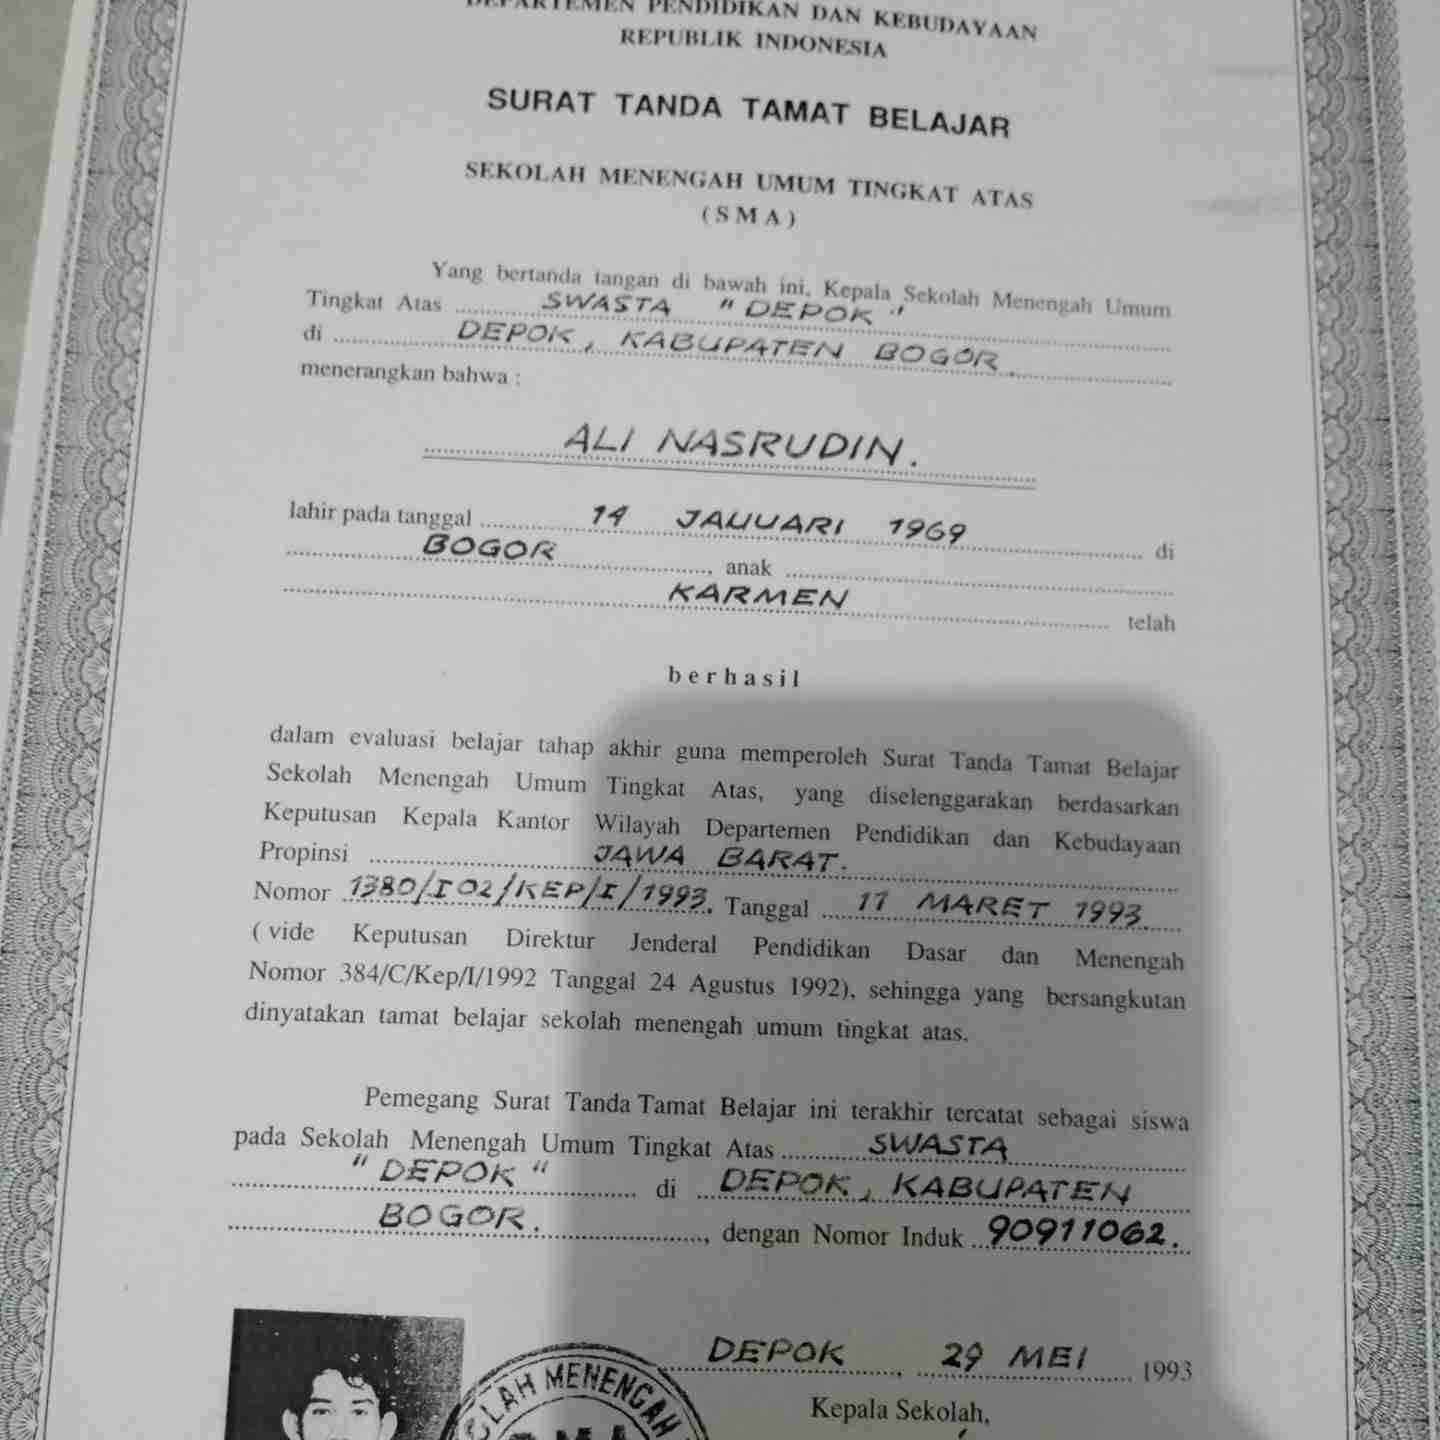 DEPARTEMEN PENDIDIKAN DAN KEBUDAYAAN
REPUBLIK INDONESIA
SURAT TANDA TAMAT BELAJAR
SEKOLAH MENENGAH UMUM TINGKAT ATAS
(SMA)
Yang bertanda tangan di bawah ini, Kepala Sekolah Menengah Umum
Tingkat Atas SWASTA "DEPOK"
di DEPOK, KABUPATEN BOGOR.
menerangkan bahwa :
ALI NASRUDIN.
lahir pada tanggal 14 JANUARI 1969 di
BOGOR, anak
KARMEN telah
berhasil
dalam evaluasi belajar tahap akhir guna memperoleh Surat Tanda Tamat Belajar
Sekolah Menengah Umum Tingkat Atas, yang diselenggarakan berdasarkan
Keputusan Kepala Kantor Wilayah Departemen Pendidikan dan Kebudayaan
Propinsi JAWA BARAT.
Nomor 1380/I02/KEP/I/1993. Tanggal 11 MARET 1993.
( vide Keputusan Direktur Jenderal Pendidikan Dasar dan Menengah
Nomor 384/C/Kep/I/1992 Tanggal 24 Agustus 1992), sehingga yang bersangkutan
dinyatakan tamat belajar sekolah menengah umum tingkat atas.
Pemegang Surat Tanda Tamat Belajar ini terakhir tercatat sebagai siswa
pada Sekolah Menengah Umum Tingkat Atas SWASTA
"DEPOK" di DEPOK, KABUPATEN
BOGOR., dengan Nomor Induk 90911062.
DEPOK, 29 MEI 1993
Kepala Sekolah,
MENENGAH